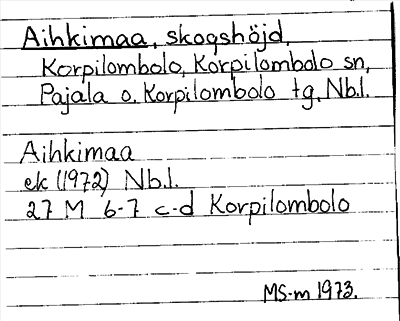 Aihkimaa, skogshöjd,
Korpilombolo, Korpilombolo sn,
Pajala o. Korpilombolo tg, Nb.l.
Aihkimaa
ek (1972) Nb.l.
27 M 6-7 c-d Korpilombolo
MS-m 1973.